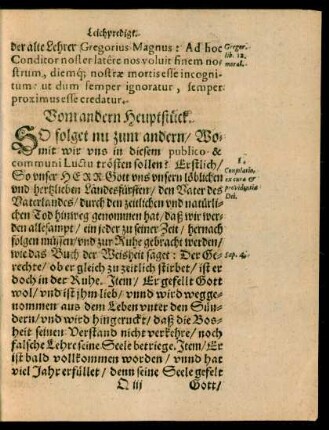 Leichpredigt.
der alte Lehrer Gregorius Magnus: Ad hoc
Gregor.
lib. 12.
moral.
Conditor noster latêre nos voluit finem no-
strum, diemq; nostræ mortis esse incogni-
tum: ut dum semper ignoratur, semper
proximus esse credatur.
Vom andern Heuptstück.
SO folget nu zum andern/ Wo-
mit wir uns in diesem publico &
communi Luctu trösten sollen? Erstlich/
1.
Consolatio,
ex cura &
providentia
Dei.
So unser HERR Gott uns unsern löblichen
und hertzlieben Landesfürsten/ den Vater des
Vaterlandes/ durch den zeitlichen und natürli-
chen Tod hinweg genommen hat/ daß wir wer-
den allesampt/ ein jeder zu seiner Zeit/ hernach
folgen müssen/ und zur Ruhe gebracht werden/
wie das Buch der Weisheit saget: Der Ge-
Sap. 4.
rechte/ ob er gleich zu zeitlich stirbet/ ist er
doch in der Ruhe. Item/ Er gefellt Gott
wol/ und ist jhm lieb/ unnd wird wegge-
nommen aus dem Leben unter den Sün-
dern/ und wird hingeruckt/ daß die Bos-
heit seinen Verstand nicht verkehre/ noch
falsche Lehre seine Seele betriege. Item/ Er
ist bald vollkommen worden/ unnd hat
viel Jahr erfüllet/ denn seine Seele gefelt
Q iij
Gott/